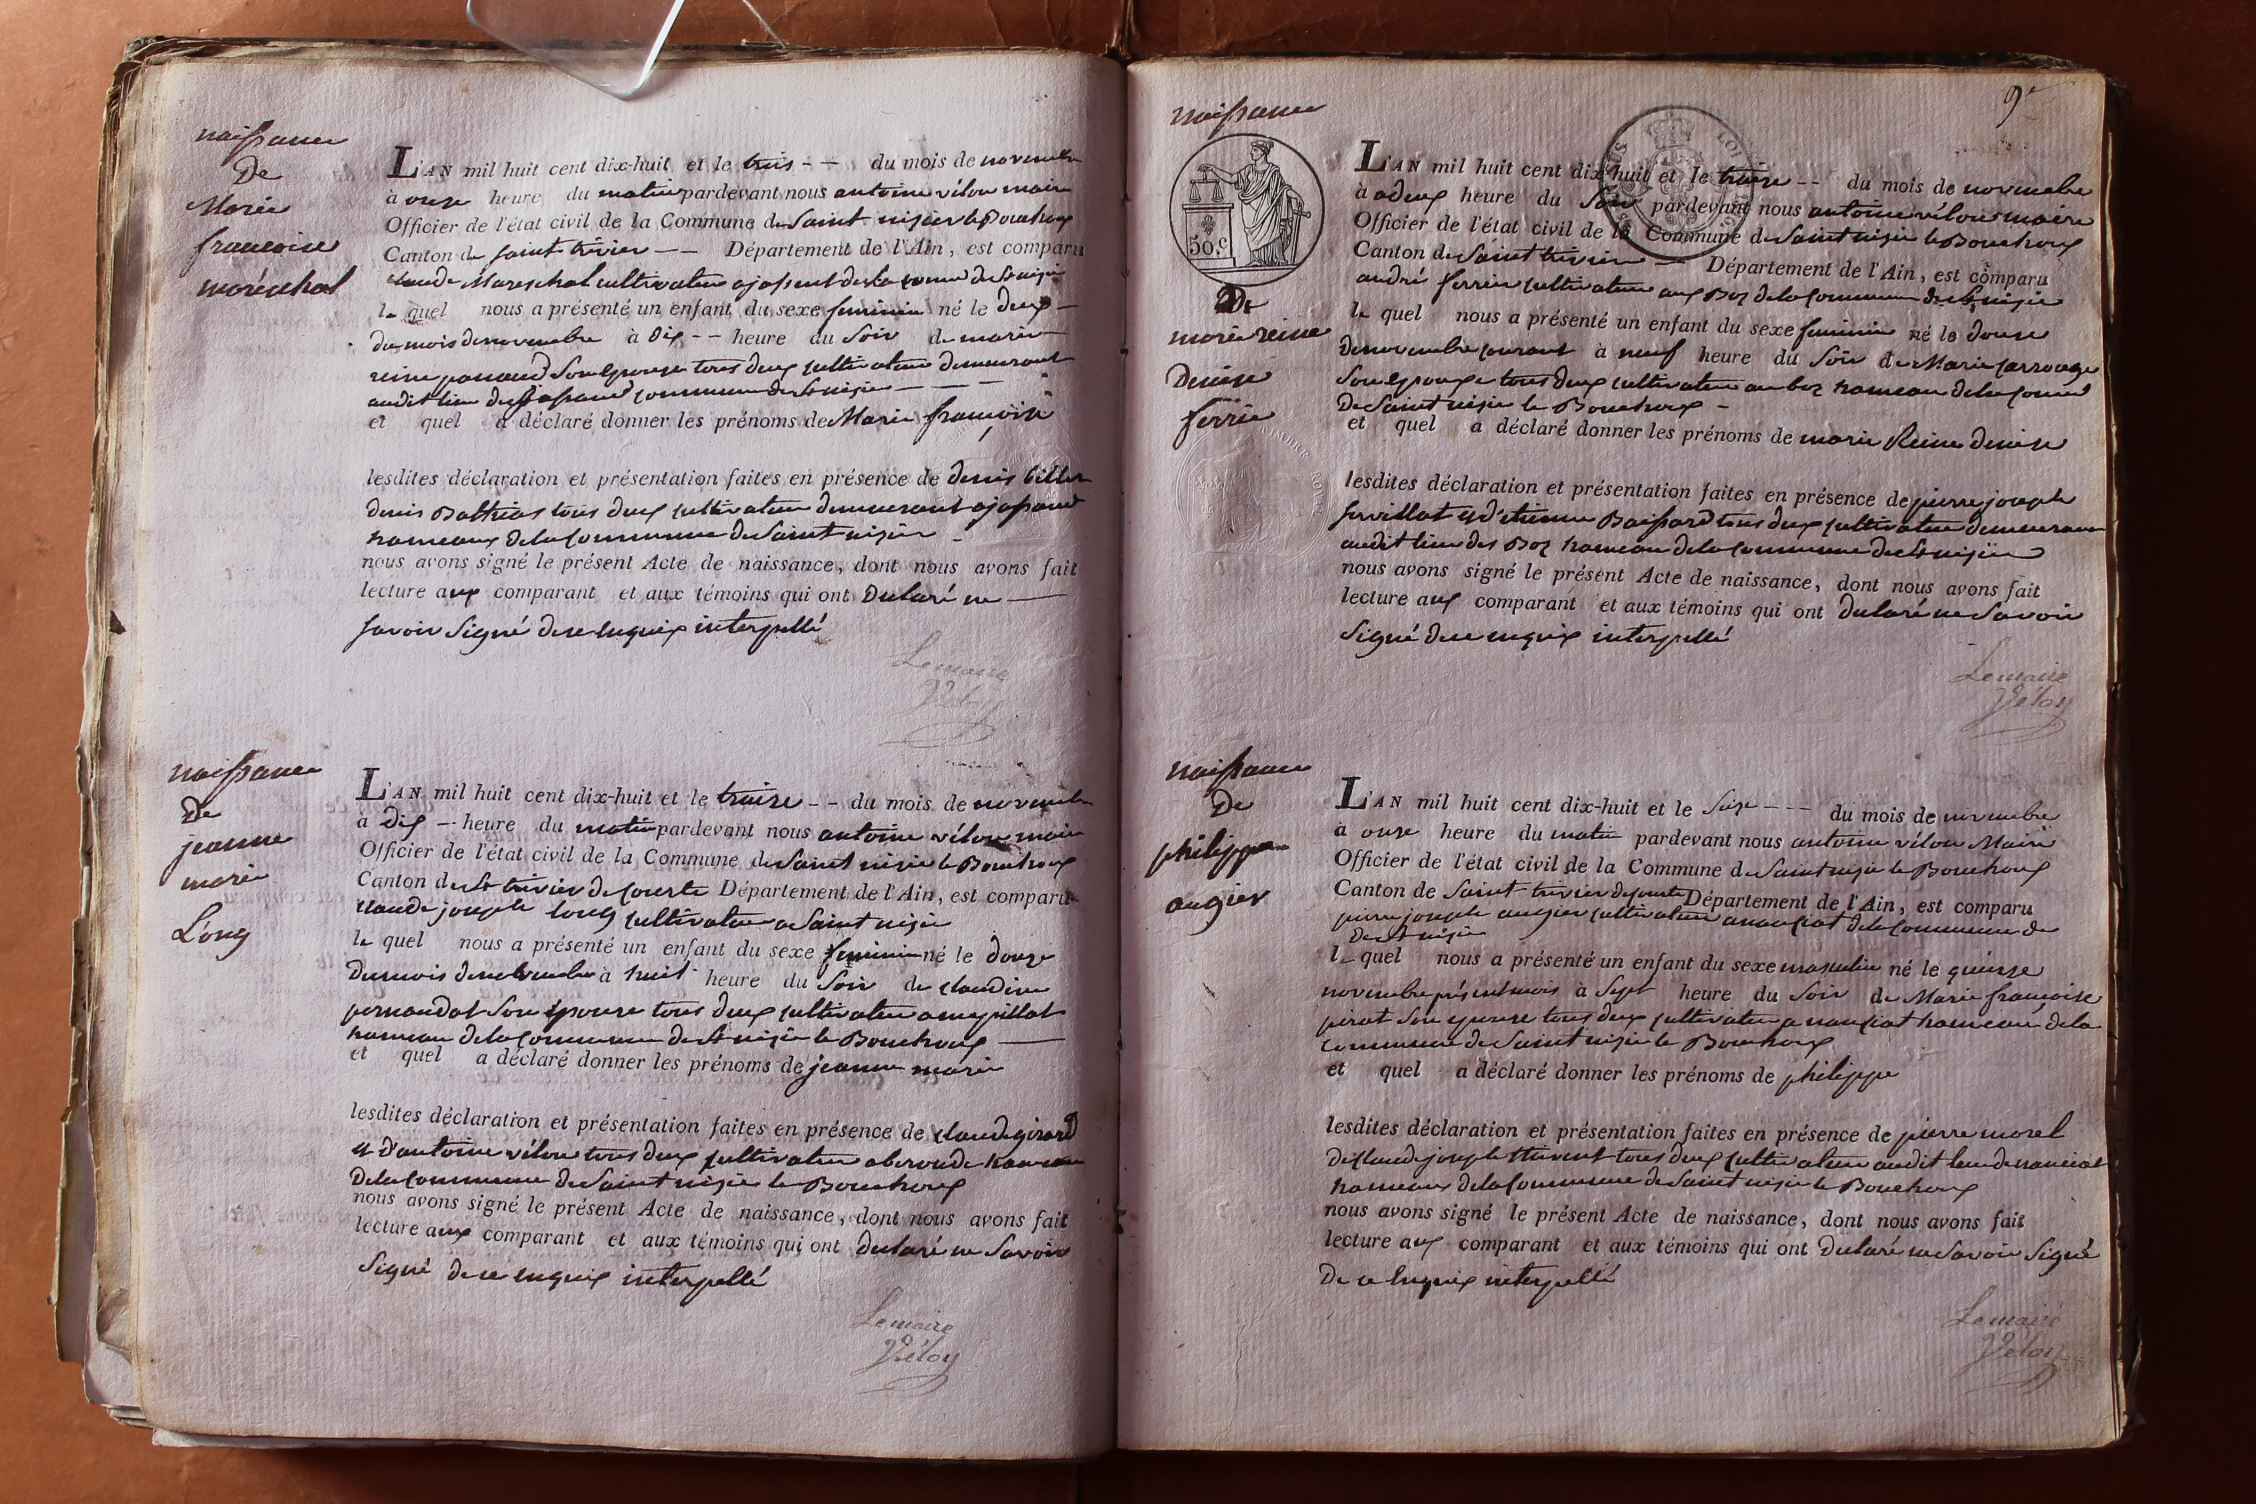 naissance
De
Marie
françoise
maréchal
L'AN mil huit cent dix-huit et le trois -- du mois de novembre
à onze heure du matin pardevant nous antoine vélon maire
Officier de l'état civil de la Commune de Saint nizier le Bouchoux
Canton de saint trivier -- Département de l'Ain, est comparu
claude Mareschal cultivateur
le quel nous a présenté un enfant du sexe feminin né le deux
du mois de novembre à dix -- heure du Soir de marie
reine son epouse tous deux cultivateur demeurant
audit lieu commune de St nizier
et quel a déclaré donner les prénoms de Marie françoise
lesdites déclaration et présentation faites en présence de denis
denis tous deux cultivateur demeurant
hameaux de la commune de Saint nizier
nous avons signé le présent Acte de naissance, dont nous avons fait
lecture aux comparant et aux témoins qui ont declaré ne
savoir signé de ce enquix interpellé
Le maire
Vélon
naissance
De
jeanne
marie
Long
L'AN mil huit cent dix-huit et le treize -- du mois de novembre
à dix -- heure du matin pardevant nous antoine vélon maire
Officier de l'état civil de la Commune de Saint nizier le Bouchoux
Canton de St trivier de courte Département de l'Ain, est comparu
claude joseph long cultivateur a Saint nizier
le quel nous a présenté un enfant du sexe feminin né le douze
du mois de novembre à huit heure du Soir de claudine
son epouse tous deux cultivateur
hameau de la commune de St nizier le Bouchoux
et quel a déclaré donner les prénoms de jeanne marie
lesdites déclaration et présentation faites en présence de claude girard
et d'antoine vélon tous deux cultivateur hameau
de la commune de Saint nizier le Bouchoux
nous avons signé le présent Acte de naissance, dont nous avons fait
lecture aux comparant et aux témoins qui ont declaré ne Savoir
Signé de ce enquix interpellé
Le maire
Vélon
9e
naissance
50 c.
De
marie reine
Denise
ferrier
L'AN mil huit cent dix-huit et le treize -- du mois de novembre
à deux heure du Soir pardevant nous antoine vélon maire
Officier de l'état civil de la Commune de Saint nizier le Bouchoux
Canton de Saint trivier -- Département de l'Ain, est comparu
andré ferrier cultivateur aux Boz de la commune de St nizier
le quel nous a présenté un enfant du sexe feminin né le douze
de novembre courant à neuf heure du Soir de Marie carronge
son epouse tous deux cultivateur au boz hameau de la comne
De Saint nizier le Bouchoux -
et quel a déclaré donner les prénoms de marie Reine denise
lesdites déclaration et présentation faites en présence de pierre joseph
servillat et d'etienne Boissard tous deux cultivateur demeurant
audit lieu des Boz hameau de la commune de St nizier
nous avons signé le présent Acte de naissance, dont nous avons fait
lecture aux comparant et aux témoins qui ont declaré ne Savoir
signé de ce enquix interpellé
Le maire
Vélon
naissance
De
philippe
augier
L'AN mil huit cent dix-huit et le Seize --- du mois de novembre
à onze heure du matin pardevant nous antoine vélon Maire
Officier de l'état civil de la Commune de Saint nizier le Bouchoux
Canton de Saint trivier de courte Département de l'Ain, est comparu
pierre joseph augier cultivateur a nanciat de la commune de
de St nizier
le quel nous a présenté un enfant du sexe masculin né le quinze
novembre présent mois à Sept heure du Soir de Marie françoise
pirat son epouse tous deux cultivateur a nanciat hameau de la
commune de Saint nizier le Bouchoux
et quel a déclaré donner les prénoms de philippe
lesdites déclaration et présentation faites en présence de pierre morel
De claude joseph tous deux cultivateur audit lieu de nanciat
hameaux de la commune de Saint nizier le Bouchoux
nous avons signé le présent Acte de naissance, dont nous avons fait
lecture aux comparant et aux témoins qui ont declaré ne Savoir Signé
De ce enquix interpellé
Le maire
Vélon